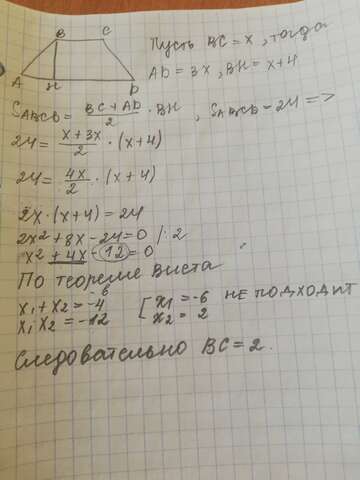 B C
A H D
Пусть BC = x, тогда
AD = 3x, BH = x+4
S ABCD = (BC + AD)/2 · BH, S ABCD = 24 =>
24 = (x + 3x)/2 · (x+4)
24 = 4x/2 · (x+4)
2x · (x+4) = 24
2x² + 8x - 24 = 0 /: 2
x² + 4x - 12 = 0
По теореме Виета
x₁ + x₂ = -4
x₁ x₂ = -12
[ x₁ = -6 не подходит
x₂ = 2
Следовательно BC = 2.